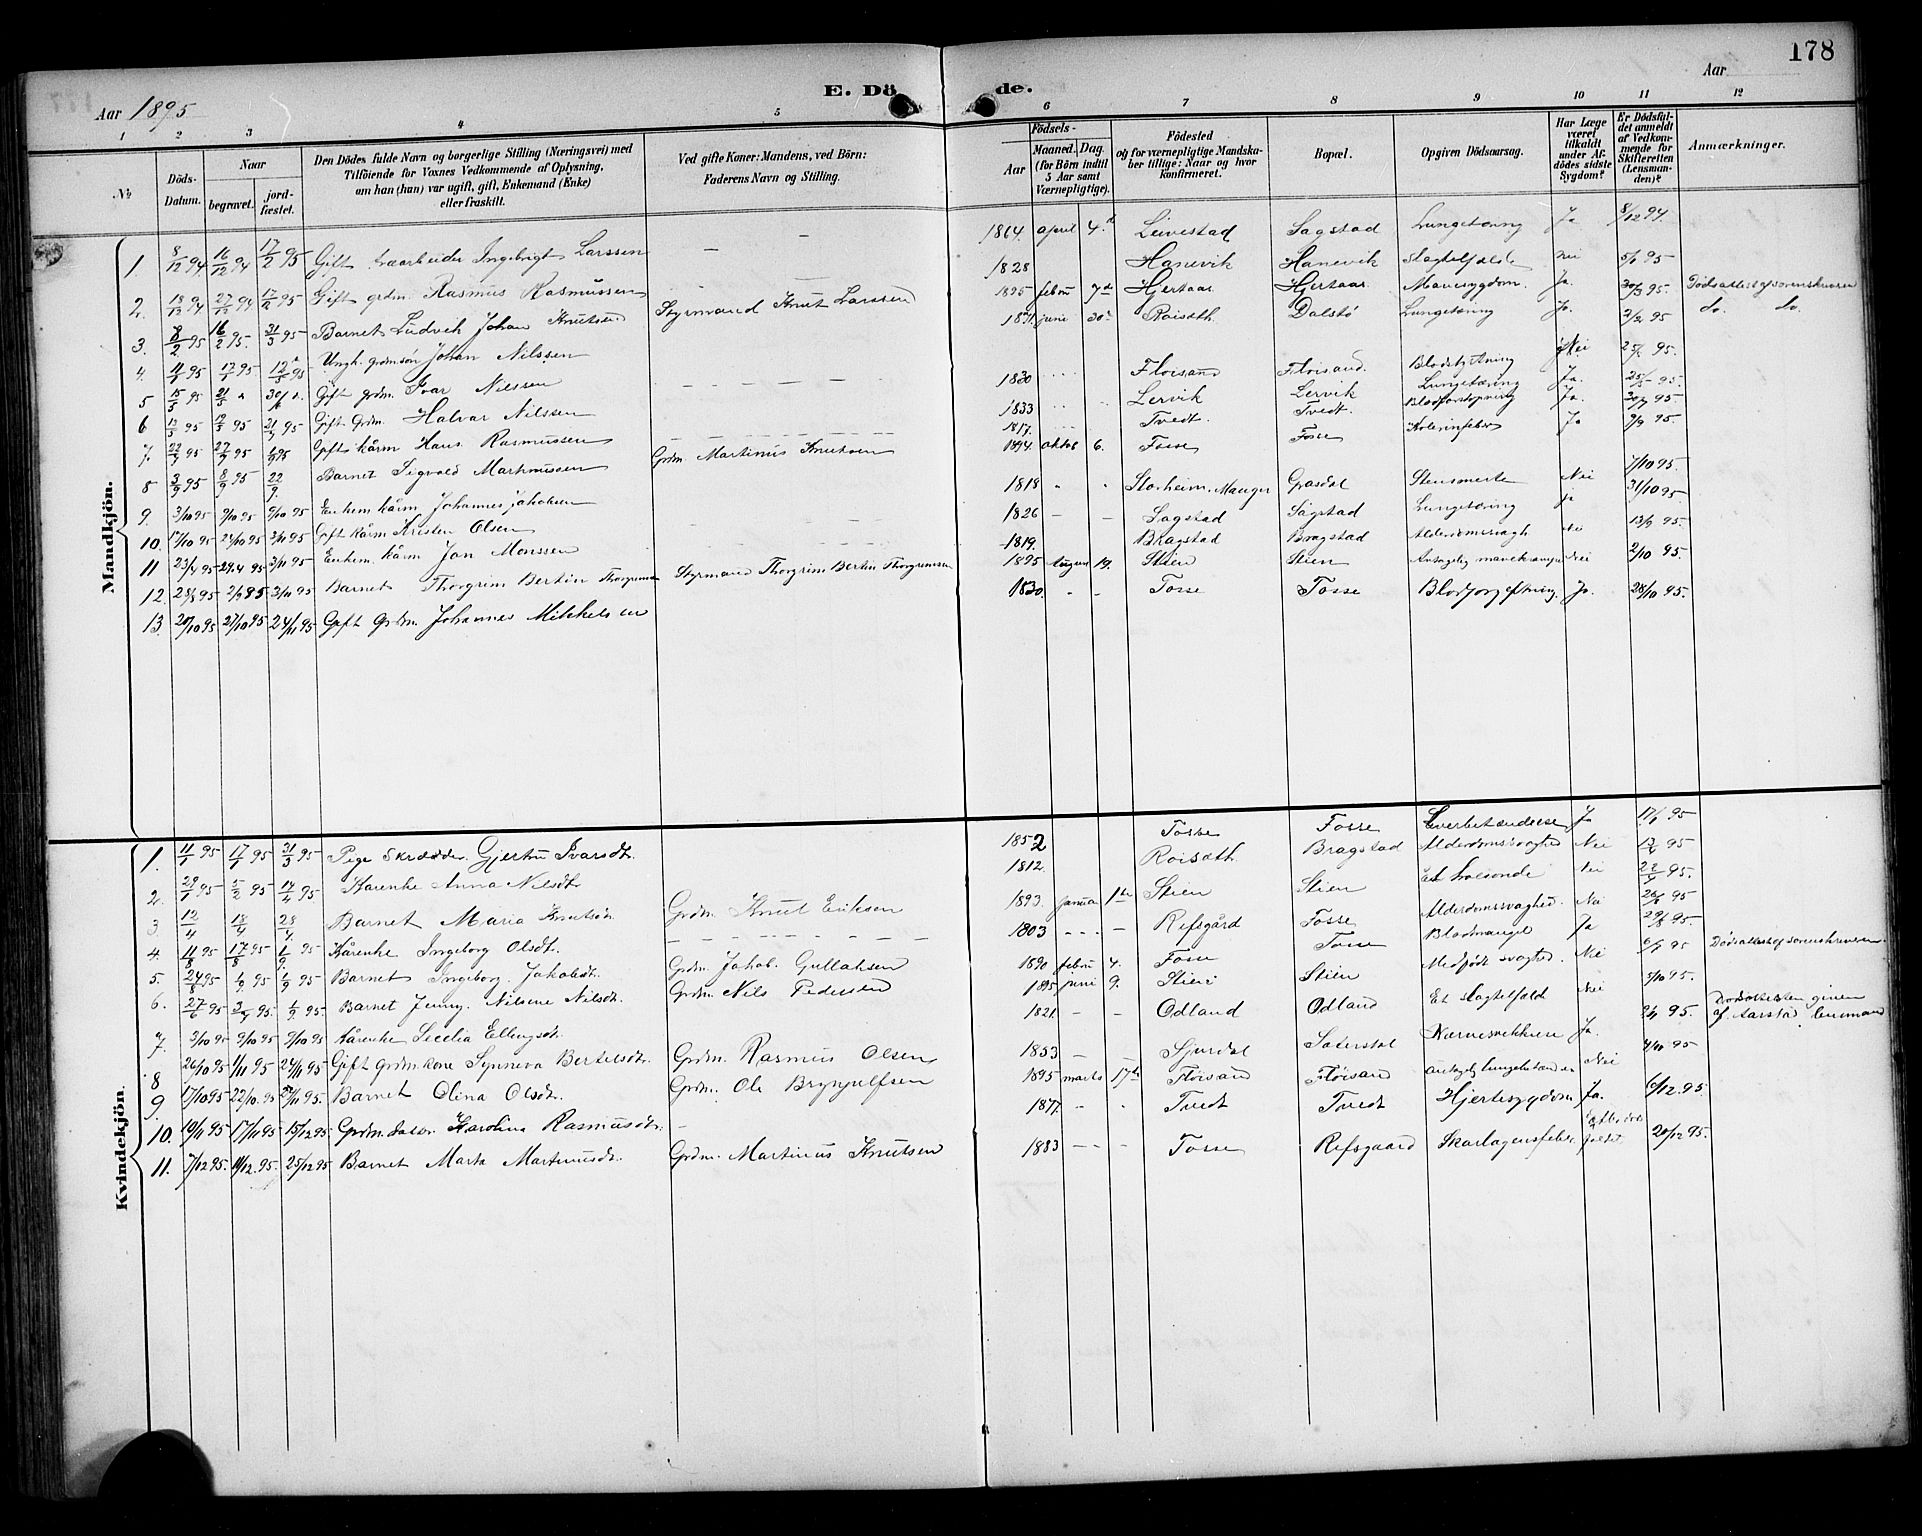 178
Aar 1895
E. Dö
de.
Aar
1 2 3 4 5 6 7 8 9 10 11 12
№
Döds-
Datum.
Naar
begravet.
jord-
fæstet.
Den Dödes fulde Navn og borgerlige Stilling (Næringsvei) med
Tilföiende for Voxnes Vedkommende af Oplysning,
om han (hun) var ugift, gift, Enkemand (Enke)
eller fraskilt.
Ved gifte Koner: Mandens, ved Börn:
Faderens Navn og Stilling.
Födsels-
Aar
Maaned. Dag.
(for Börn indtil
5 Aar samt
Værnepligtige).
Födested
og for værnepligtige Mandska-
ber tillige: Naar og hvor
konfirmeret.
Bopæl.
Opgiven Dödsaarsag.
Har Læge
været
tilkaldt
under Af-
dödes sidste
Sygdom?
Er Dödsfal-
det anmeldt
af Vedkom-
mende for
Skifteretten
(Lensman-
den)?
Anmærkninger.
Mandkjön.
1. 8/12 94 16/12 94 17/2 95 Gift træarbeider Ingebrigt Larssen — — 1864. april 4. Leivestad Sagstad Lungetæring Ja 8/12 94
2. 18/12 94 27/12 94 17/2 95 Gift grdm. Rasmus Rasmussen 1828 Hanevik Hanevik Slagtilfælde Nei 5/1 95
3. 8/2 95 16/2 95 31/3 95 Barnet Ludvik Johan Knutsen Styrmand Knut Larssen 1895 febru 7de Hjertaas Hjertaas Mavesygdom Ja. 30/3 95. Dödsattest af sorenskriveren
4. 11/1 95 17/1 95 12/5 95 Ungk. grdmsön Johan Nilssen juni 30 Roisæth. Dalstö Lungetæring Ja. 2/2 95 do. do.
5 15/5 95 21/5 Gift grdm. Ivar Nilssen 1830 Floisand Floisand. Blodstyrtning Nei 25/5 95.
6. 95 95 95 Gift Grdm. Halvar Nilssen 1833 Lervik Lervik Lungetæring Ja. 95.
7. 22/7 95 27/7 95 95 Gift kårm Hans Rasmussen 1817. Tvedt. Tvedt. Blodforstopning Ja. 30/7 95
8 3/9 95 8/9 95 22/9. Barnet Sigvald Martinussen Grdm. Martinus Knutsen 1894. oktob 6. Fosse Fosse Kolerinfeber Ja 9/9 95.
9. 3/10 95 9/10 95 9/10 95 Enkem kårm Johannes Jakobsen 1818 Storheim. Manger Grasdal Stensmerte Nei 7/10 95.
10. 17/10 95 24/10 95 3/11 95 Gift kårm Kristen Olsen 1826 — — Sagstad Sagstad Lungetæring ja 31/10 95
11 23/4 95 29.4 95 3/11 95 Enkem. kårm Jon Monssen 1819. Bragstad Bragstad Alderdomssvagh Nei 13/9 95.
12. 25/8 95 2/9 95 3/11 95 Barnet Thorgrim Bertin Styrmand Thorgrim Bertin Thorgrimsen 1895 August 19. Stien Stien Nei 2/10 95.
13. 20/10 95 27/10 95 24/11 95 Gift Grdm. Johannes Mikkelsen 1830. - - Fosse Fosse Ja. 28/10 95.
Kvindekjön.
1. 11/1 95 17/1 95 31/3 95 Pige Skrædder. Gjertru Ivarsdt. 1852 Fosse Fosse Leverbetændelse Ja 17/1 95
2. 29/1 95 5/2 95 14/4 95 Kårenke Anna Nilsdt. 1812. Roisæth Bragstad Alderdomssvaghed Nei 95
3. 12/4 18/4 28/4. Barnet Maria Knutsdt Grdm. Knut Eriksen 1893. Janua 1ste Stien Stien Nei 22/4 95.
4. 11/8 95 17/8 95 1/9 95 Kårenke Ingeborg Olsdt. 1803 - - - Refsgård Fosse Alderdomssvaghed. Nei 95
5. 24/8 95 1/9 95 1/9 95 Barnet Ingeborg. Jakobsdt. Grdm. Jakob. Gullaksen 1890 febru 4. Fosse Fosse Blodmangel Ja 29/8 95.
6. 27/6 95 95. 1/9. 95 Barnet Jenny. Nilsine Nilsdt. Grdm. Nils Pedersen 1895 juni 9. Stien Stien Medfödt svaghed. Nei 95 Dödsattest af sorenskriveren
7. 3/10 95 9/10 95 9/10 95 Kårenke Secelia Ellingsdt. 1821. - - Odland Odland Et slagtilfælde Nei 5/10 95.
8 26/10 95 1/11 95 24/11 95 Gift grdm. kone Synneva Bertelsdt. Grdm. Rasmus Olsen 1853 — Sjurdal Sæterstøl Nervesvekkelse Ja. 95. Dödsattesten given af Aarstad lensmand
9. 17/10 95 22/10. 95 24/11 95. Barnet Olina Olsdt. Grdm. Ole Brynjulfsen 1895 marts 17de Flöisand Flöisand Nei 4/10 95
10. 10/11 95 17/11 95 15/12 95 Grdm. datter. Karolina Rasmusdt. - 1877 - - Tvedt Tvedt Hjertesygdom Ja. 6/12. 95
11. 7/12 95. 11/12. 95. 25/12 95 Barnet Marta Martinusdt. Grdm. Martinus Knutsen 1883 — - Fosse Refsgaard Skarlagensfeber 20/12 95.